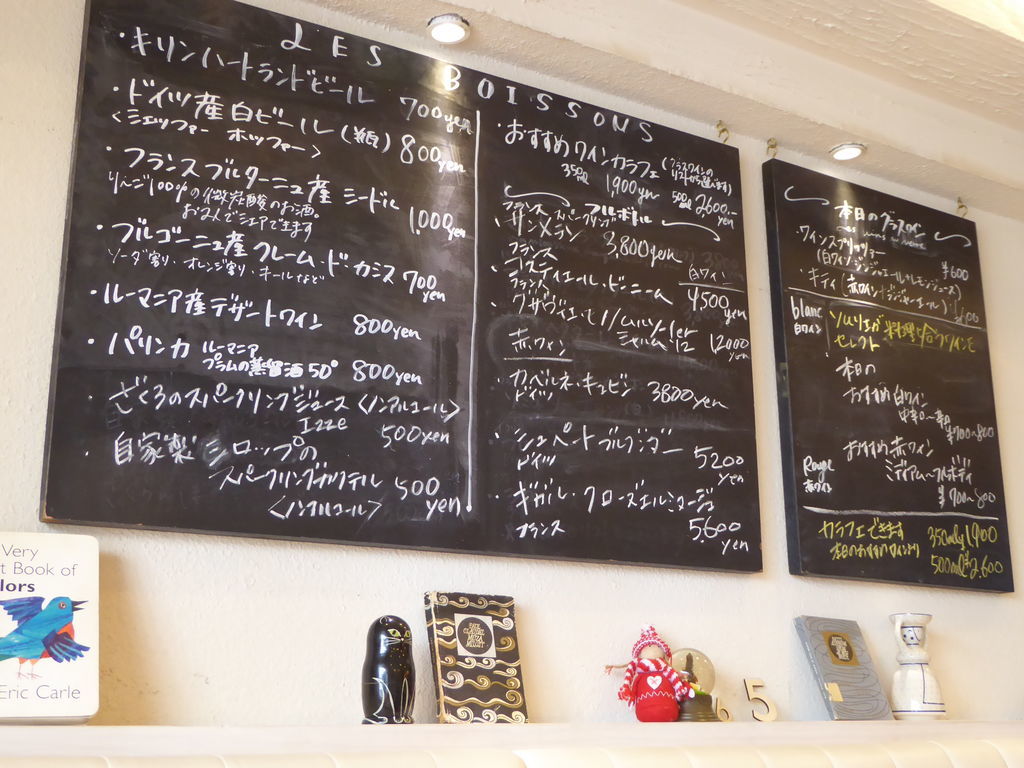 LES BOISSONS
・キリンハートランドビール 700yen
・ドイツ産白ビール(瓶) 800yen
<シェッファー ホッファー>
・フランスブルターニュ産 シードル 1,000yen
りんご100%の微炭酸のお酒。
お2人でシェアできます
・ブルゴーニュ産クレーム・ド・カシス 700yen
ソーダ割り・オレンジ割り・キールなど
・ルーマニア産デザートワイン 800yen
・パリンカ ルーマニア
プラムの蒸留酒50° 800yen
・ざくろのスパークリングジュース<ノンアルコール>
Izze 500yen
・自家製シロップの
スパークリングカクテル 500yen
<ノンアルコール>
・おすすめワインカラフェ(グラスワインの
リストから選べます)
350ml 1900yen 500ml 2600yen
フルボトル
フランス スパークリング
サンメラン 3,800yen
白ワイン
フランス
4500yen
フランス
12000yen
赤ワイン
・カベルネ・キュビン 3800yen
ドイツ
・シュペートブルグンダー 5200yen
ドイツ
・ギガル・クローズエルミタージュ
フランス 5600yen
本日のグラスワイン
・ワインスプリッツァー
(白ワイン・ジンジャーエール+レモンジュース) ¥600
・キティ(赤ワイン・ジンジャーエール) ¥600
blanc
白ワイン
ソムリエが料理に合うワインを
セレクト
本日の
おすすめ白ワイン
中辛口〜辛口
¥700〜800
Rouge
赤ワイン
おすすめ赤ワイン
ミディアム〜フルボディ
¥700〜800
カラフェできます 350ml¥1900
本日のおすすめワインより 500ml¥2.600
Very
t Book of
lors
Eric Carle
65